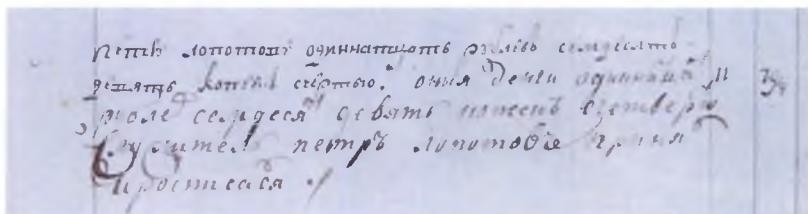 петъ лопотовъ одиннатцать рублевъ семдесятъ
девять копеекъ счетвертью. оныя денги одиннатцать 11 79¼
рубле семдеся девять копеекъ счетверт
служител петръ лопотовъ принял
и росписался